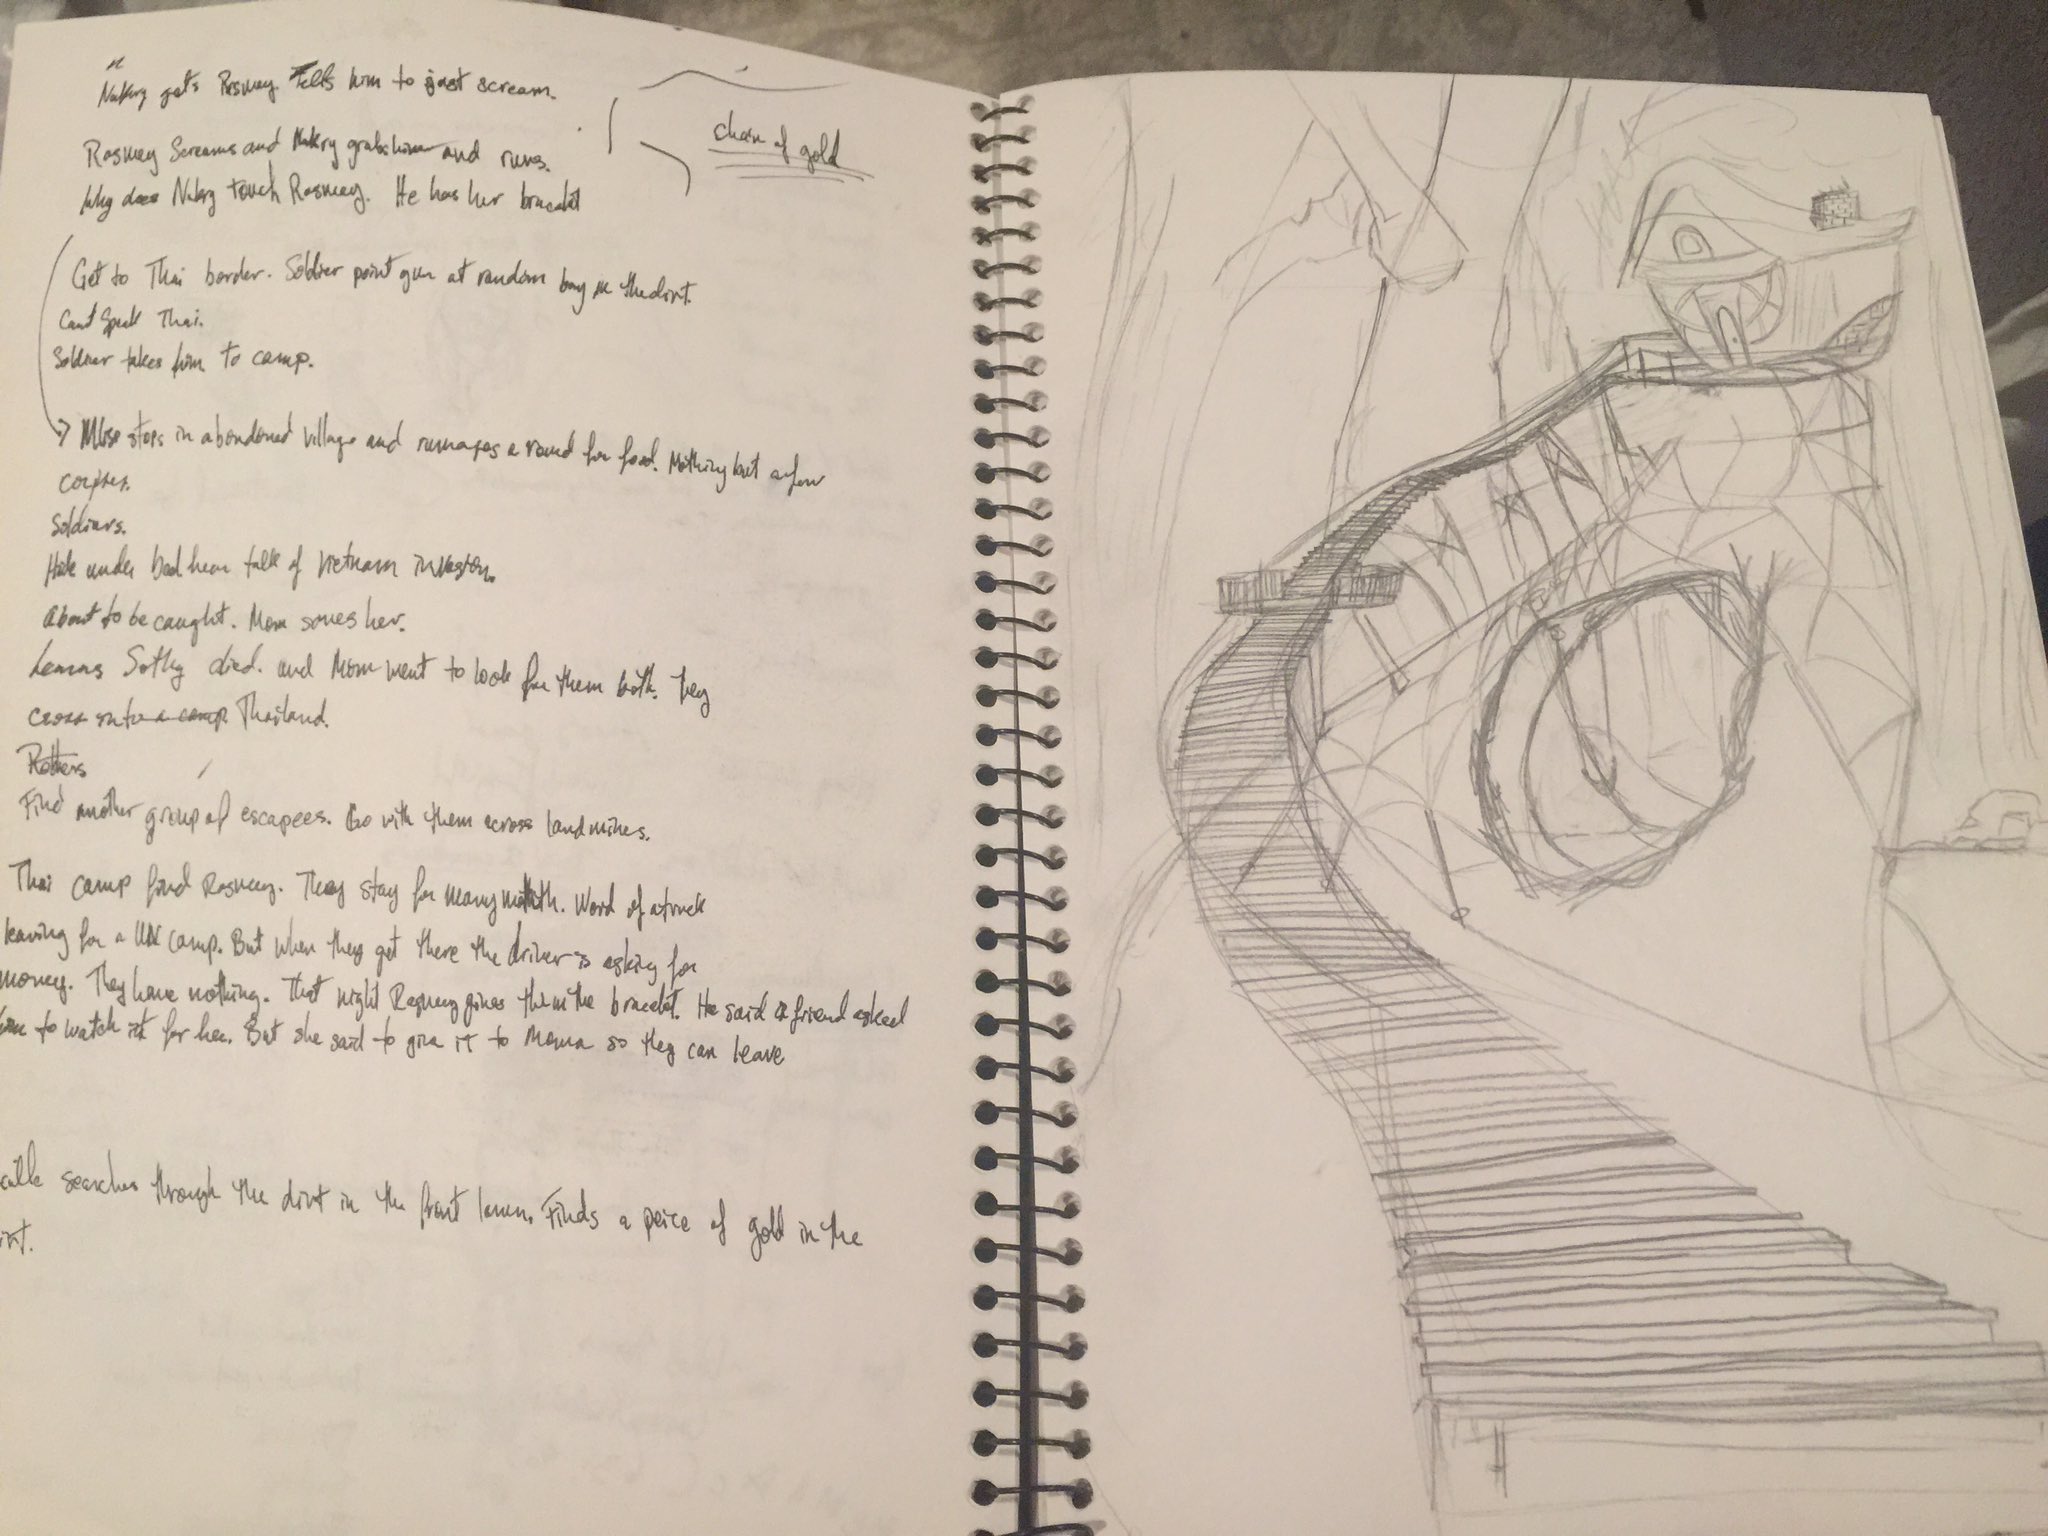 gets Rasmey. Tells him to just scream.
Rasmey Screams and grabs him and runs.
Why does touch Rasmey. He has her bracelet
chain of gold
Get to Thai border. Soldier point gun at random boy in the dirt.
Cant Speak Thai.
Soldier takes him to camp.
stops in abandoned village and rumages around for food. Nothing but a few
corpses.
Soldiers.
Hide under bed hear talk of Vietnam invasion.
About to be caught. Mom saves her.
Learns Sothy died. and Mom went to look for them both. They
cross onto a camp Thailand.
Find another group of escapees. Go with them across landmines.
Thai camp find Rasmey. They stay for many month. Word of a truck
leaving for a UN camp. But when they get there the driver is asking for
money. They have nothing. That night Rasmey gives them the bracelet. He said a friend asked
him to watch it for her. But she said to give it to Mama so they can leave
searches through the dirt in the front lawn. Finds a peice of gold in the